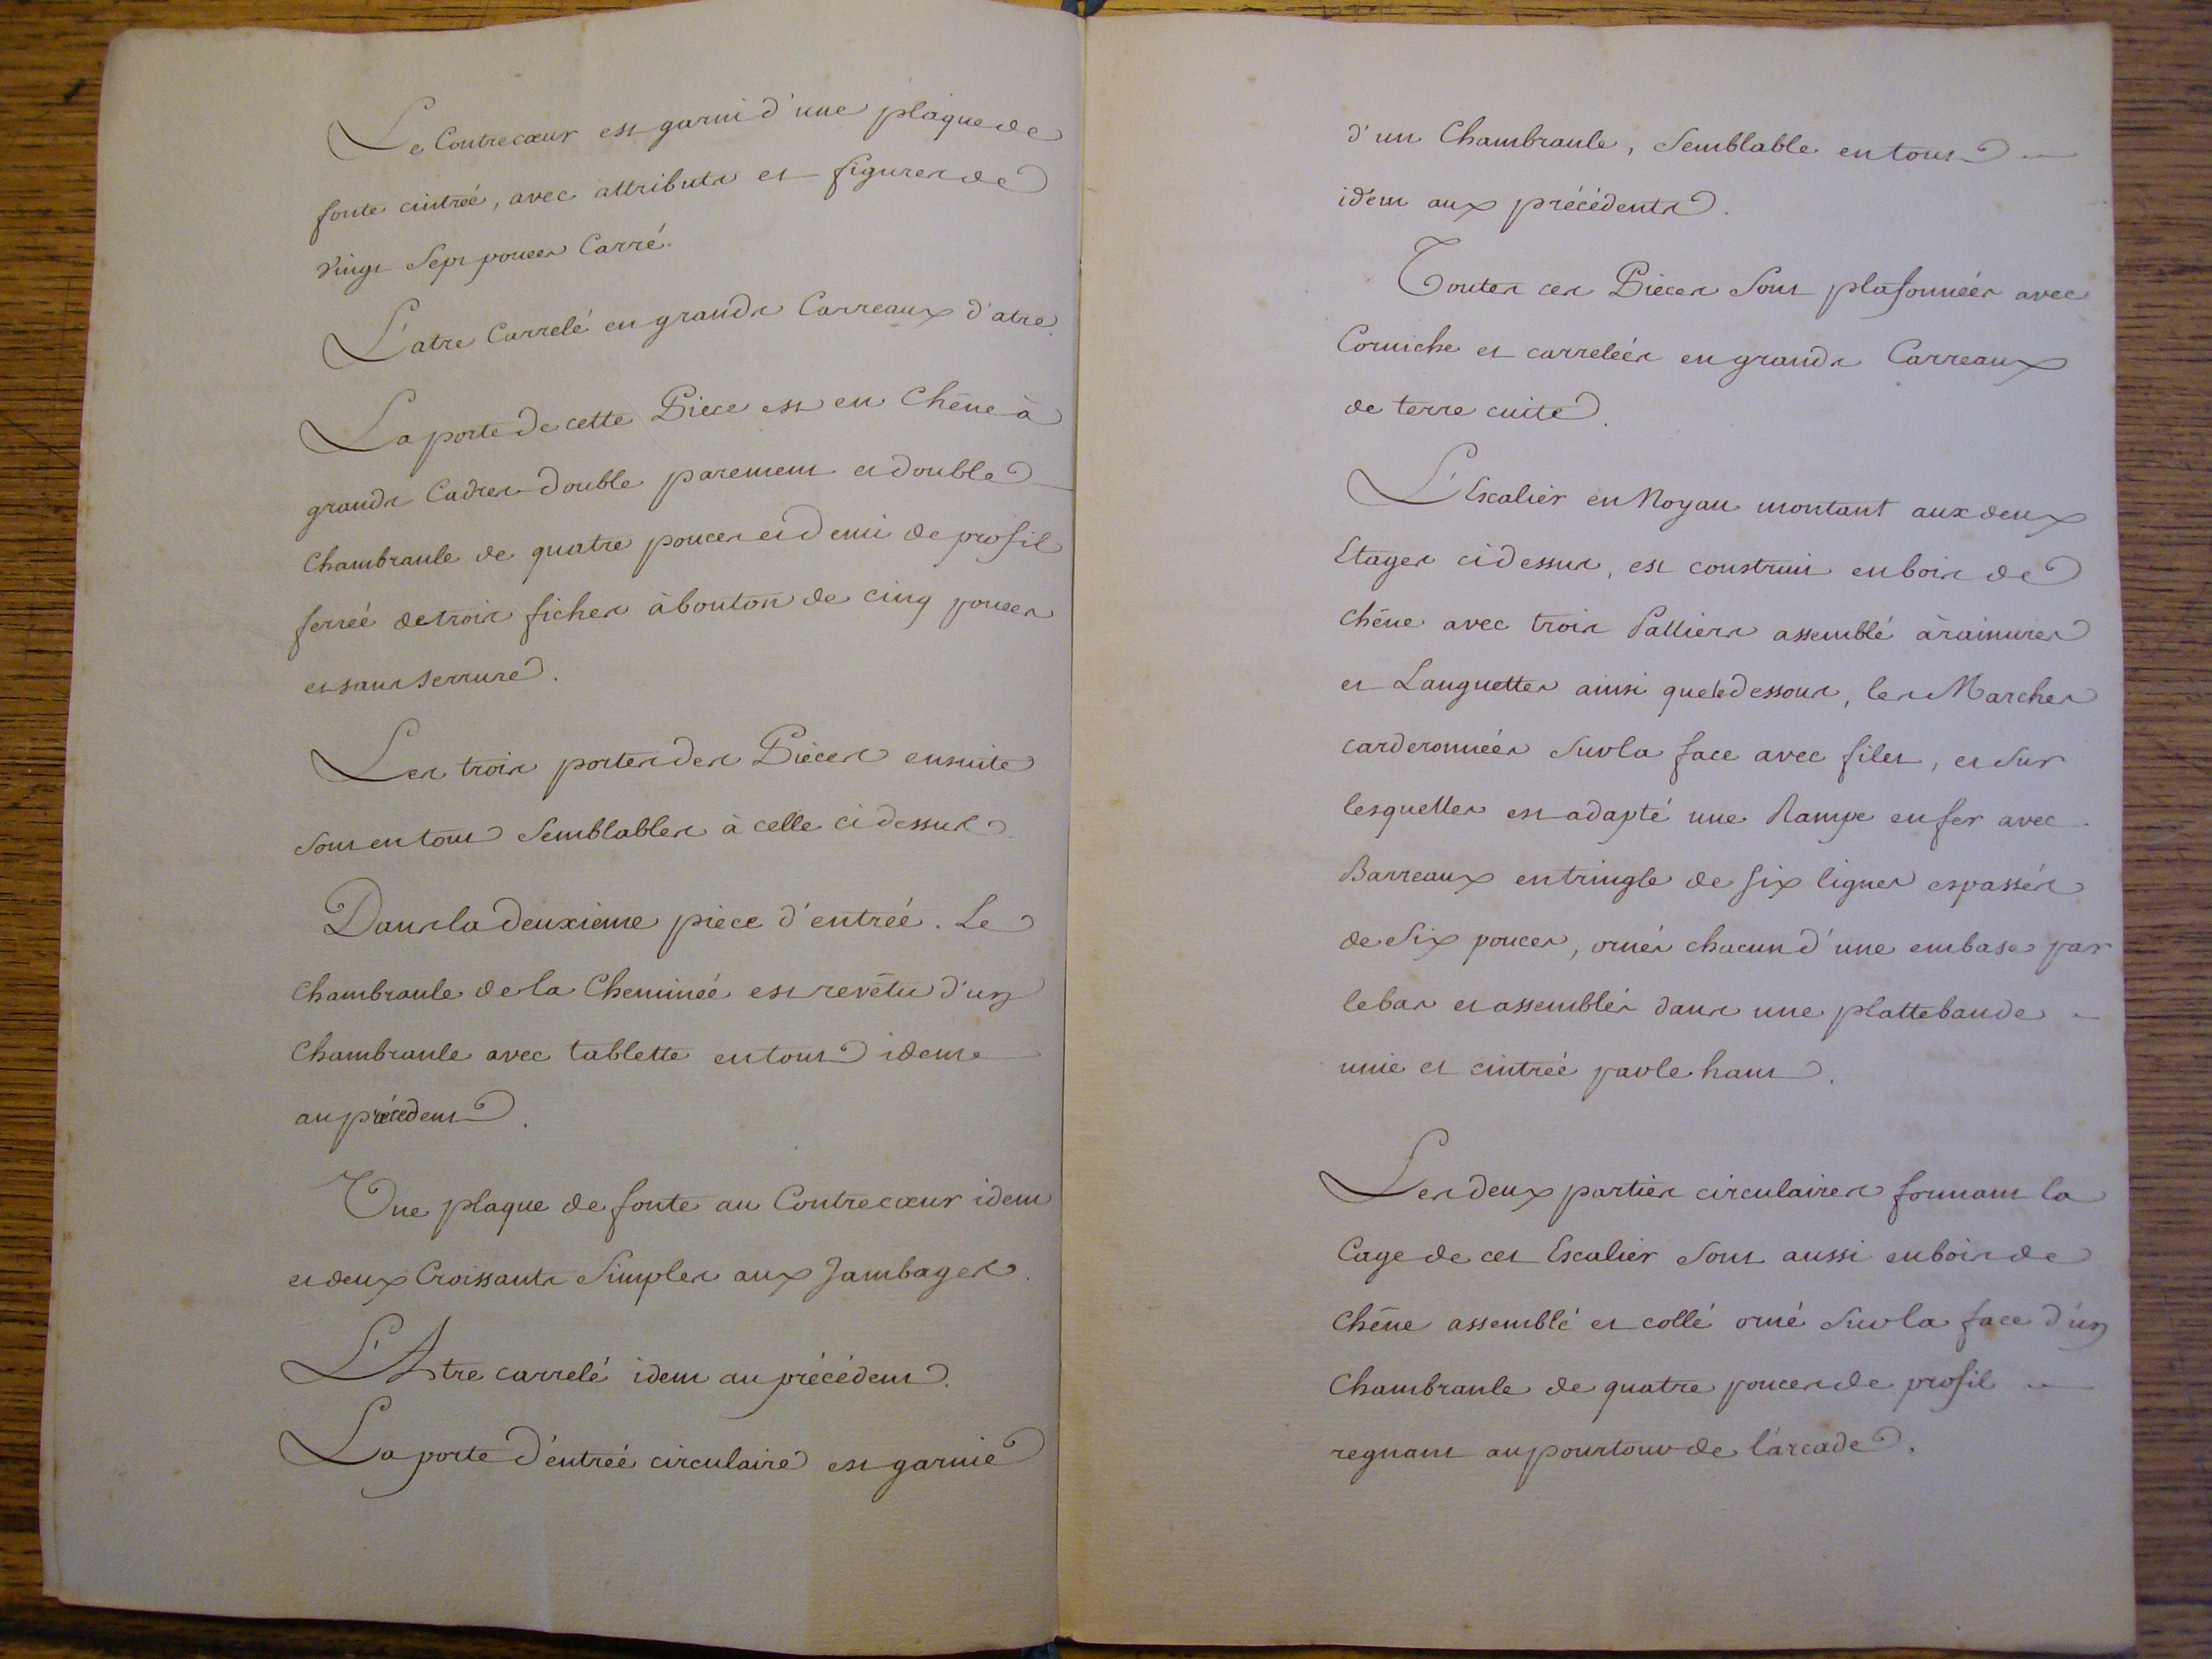 Le Contrecœur est garni d'une plaque de
fonte cintreé, avec attributs et figures de
vingt Sept pouces Carré.
L'atre Carrelé en grands Carreaux d'atre.
La porte de cette Piece est en Chêne à
grands Cadres double parement et double
Chambranle de quatre pouces et demi de profil
ferreé de trois fiches à bouton de cinq pouces
et sans serrure.
Les trois portes des Piéces ensuite
Sont en tout Semblables à celle ci dessus.
Dans la deuxieme piece d'entreé. Le
Chambranle de la Cheminée est revêtu d'un
Chambranle avec tablette en tout idem
au précedent.
Une plaque de fonte au Contrecœur idem
et deux Croissants Simples aux Jambages.
L'Atre carrelé idem au précédent.
La porte d'entreé circulaire est garnie
d'un Chambranle, Semblable en tout
idem aux précédents.
Toutes ces Pieces Sont plafonneés avec
Corniche et carreleés en grands Carreaux
de terre cuite.
L'Escalier en Noyau montant aux deux
Etages ci dessus, est construit en bois de
Chêne avec trois Palliers assemblé à rainures
et Languettes ainsi que le dessous, les Marches
carderonneés Sur la face avec filet, et Sur
lesquelles est adapté une Rampe en fer avec
Barreaux en tringle de six lignes espassés
de Six pouces, ornés chacun d'une embase par
le bas et assemblés dans une plattebande
unie et cintreé par le haut.
Les deux parties circulaires formant la
Cage de cet Escalier Sont aussi en bois de
Chêne assemblé et collé orné Sur la face d'un
Chambranle de quatre pouces de profil
regnant au pourtour de l'arcade.